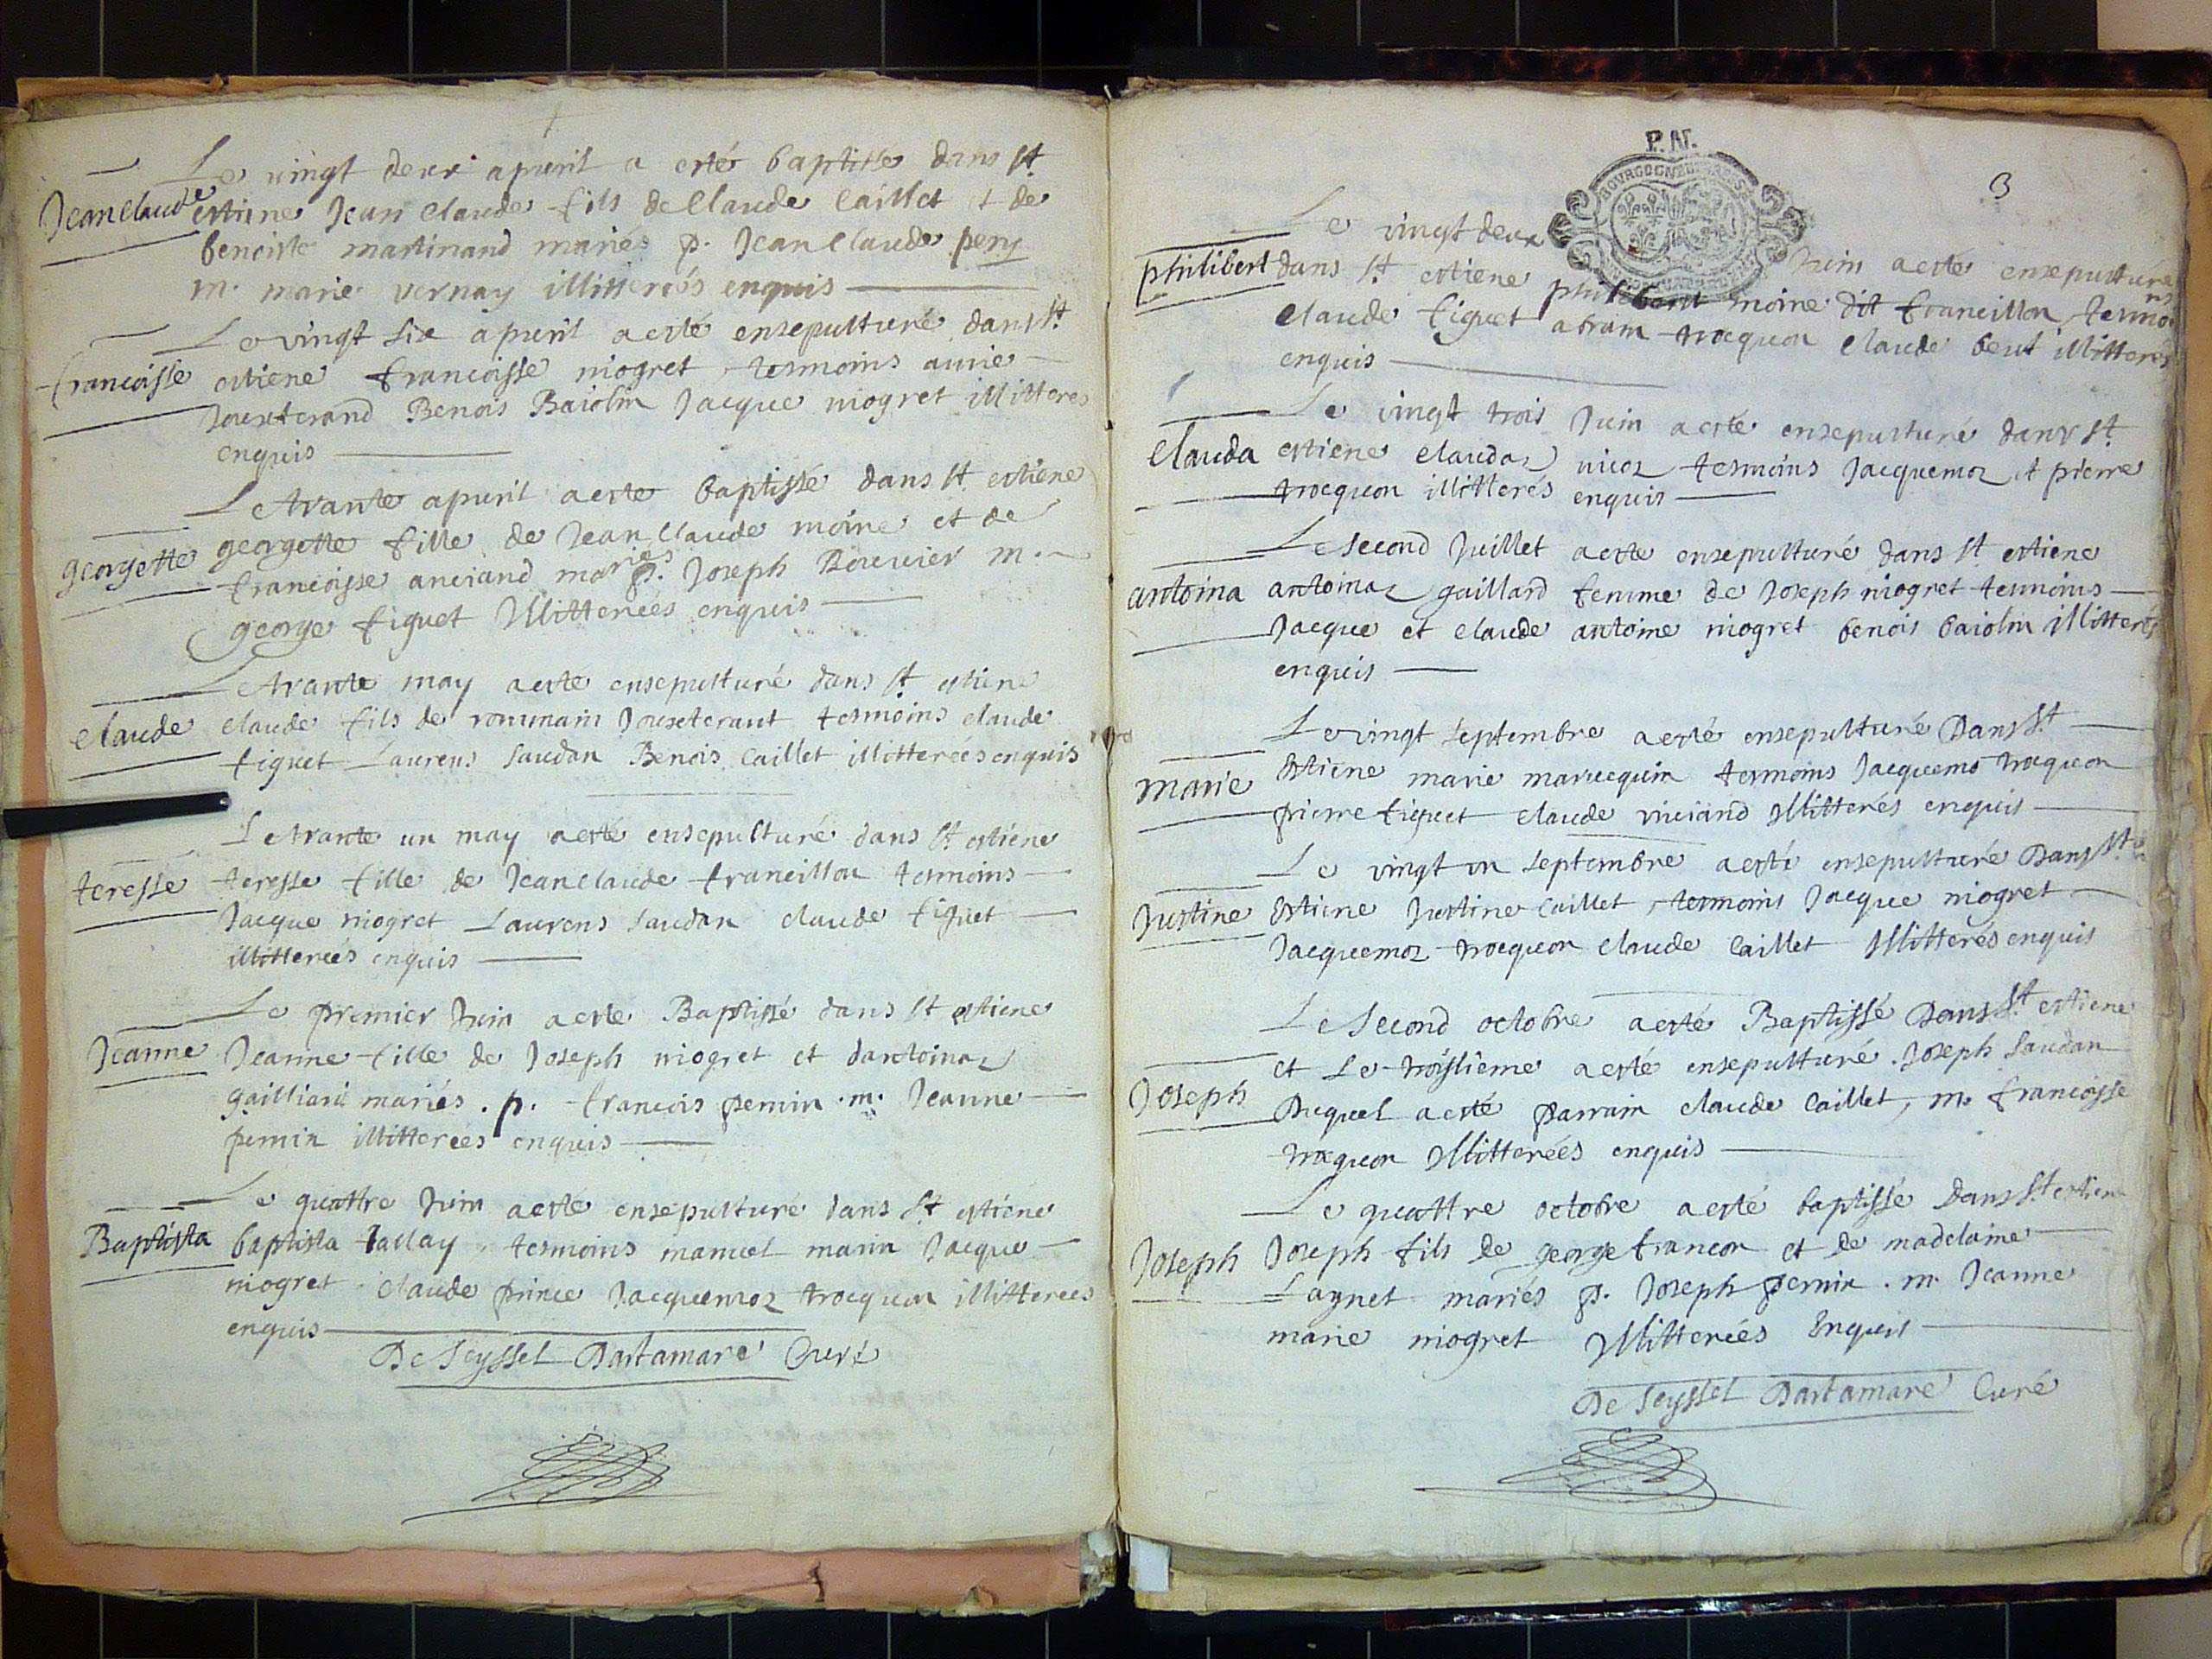 Le vingt deux apuril a esté baptisse dans st
Jean Claude
estiene Jean Claude fils de Claude Caillet & de
benoiste martinand mariés p. Jean Claude pery
m. marie vernay illitterés enquis
Le vingt six apuril a esté ensepulturé dans st
francoisse
estiene francoisse niogret tesmoins
Jouxterand Benois Baiolin Jacque niogret illitteres
enquis
Le trante apuril a esté baptissé dans st estiene
georgette
georgette fille de Jean Claude moine et de
francoisse anciand mariés p. Joseph Bouuier m.
george figuet Illitterées enquis
Le trante may a esté ensepulturé dans st estiene
claude
claude fils de rommain Jouxterant tesmoins claude
figuet Laurens Saudan Benois Caillet illitterées enquis
Le trante un may a esté ensepulturé dans st estiene
teresse
teresse fille de Jean Claude francillon tesmoins
Jacque niogret Laurens Saudan claude figuet
illitterées enquis
Le premier Juin a esté Baptissé dans st estiene
Jeanne
Jeanne fille de Joseph niogret et dantoinaz
gailliard mariés . p. francois pernin . m. Jeanne
pernin illitterées enquis
Le quattre Juin a esté ensepulturé dans st estiene
Baptista
baptista tallay tesmoins manuel marin Jacque
niogret claude prince Jacquemoz trocquon illitterées
enquis
De Seyssel Dartamare Curé
P. M.
3
Le vingt deux Juin a esté ensepulturé
philibert
dans st estiene philibert moine dit francillon tesmoins
claude figuet abram trocquon claude beut illitterés
enquis
Le vingt trois Juin a esté ensepulturé dans st
Clauda
estiene claudaz nicoz tesmoins Jacquemoz & pierre
trocquon illitterés enquis
Le second Juillet a esté ensepulturé dans st estiene
antoina
antoinaz gaillard femme de Joseph niogret tesmoins
Jacque et claude antoine niogret benois baiolin illitterés
enquis
Le vingt septembre a esté ensepulturé Dans st
marie
Estiene marie marucquin tesmoins Jacquemo trocquon
pierre figuet claude viuiand Illitterés enquis
Le vingt un septembre a esté ensepulturé Dans st
Justine
Estiene Justine Caillet tesmoins Jacque niogret
Jacquemoz trocquon claude Caillet Illitterés enquis
Le second octobre a esté Baptissé Dans st estiene
et Le troissieme a esté ensepulturé Joseph Saudan
Joseph
Duquel a esté parrain claude Caillet, m. francoisse
trocquon Illitterées enquis
Le quattre octobre a esté baptissé Dans st estiene
Joseph
Joseph fils de george francon et de madelaine
Laynet mariés p. Joseph pernin . m. Jeanne
marie niogret Illitterées Enquis
De Seyssel Dartamare Curé